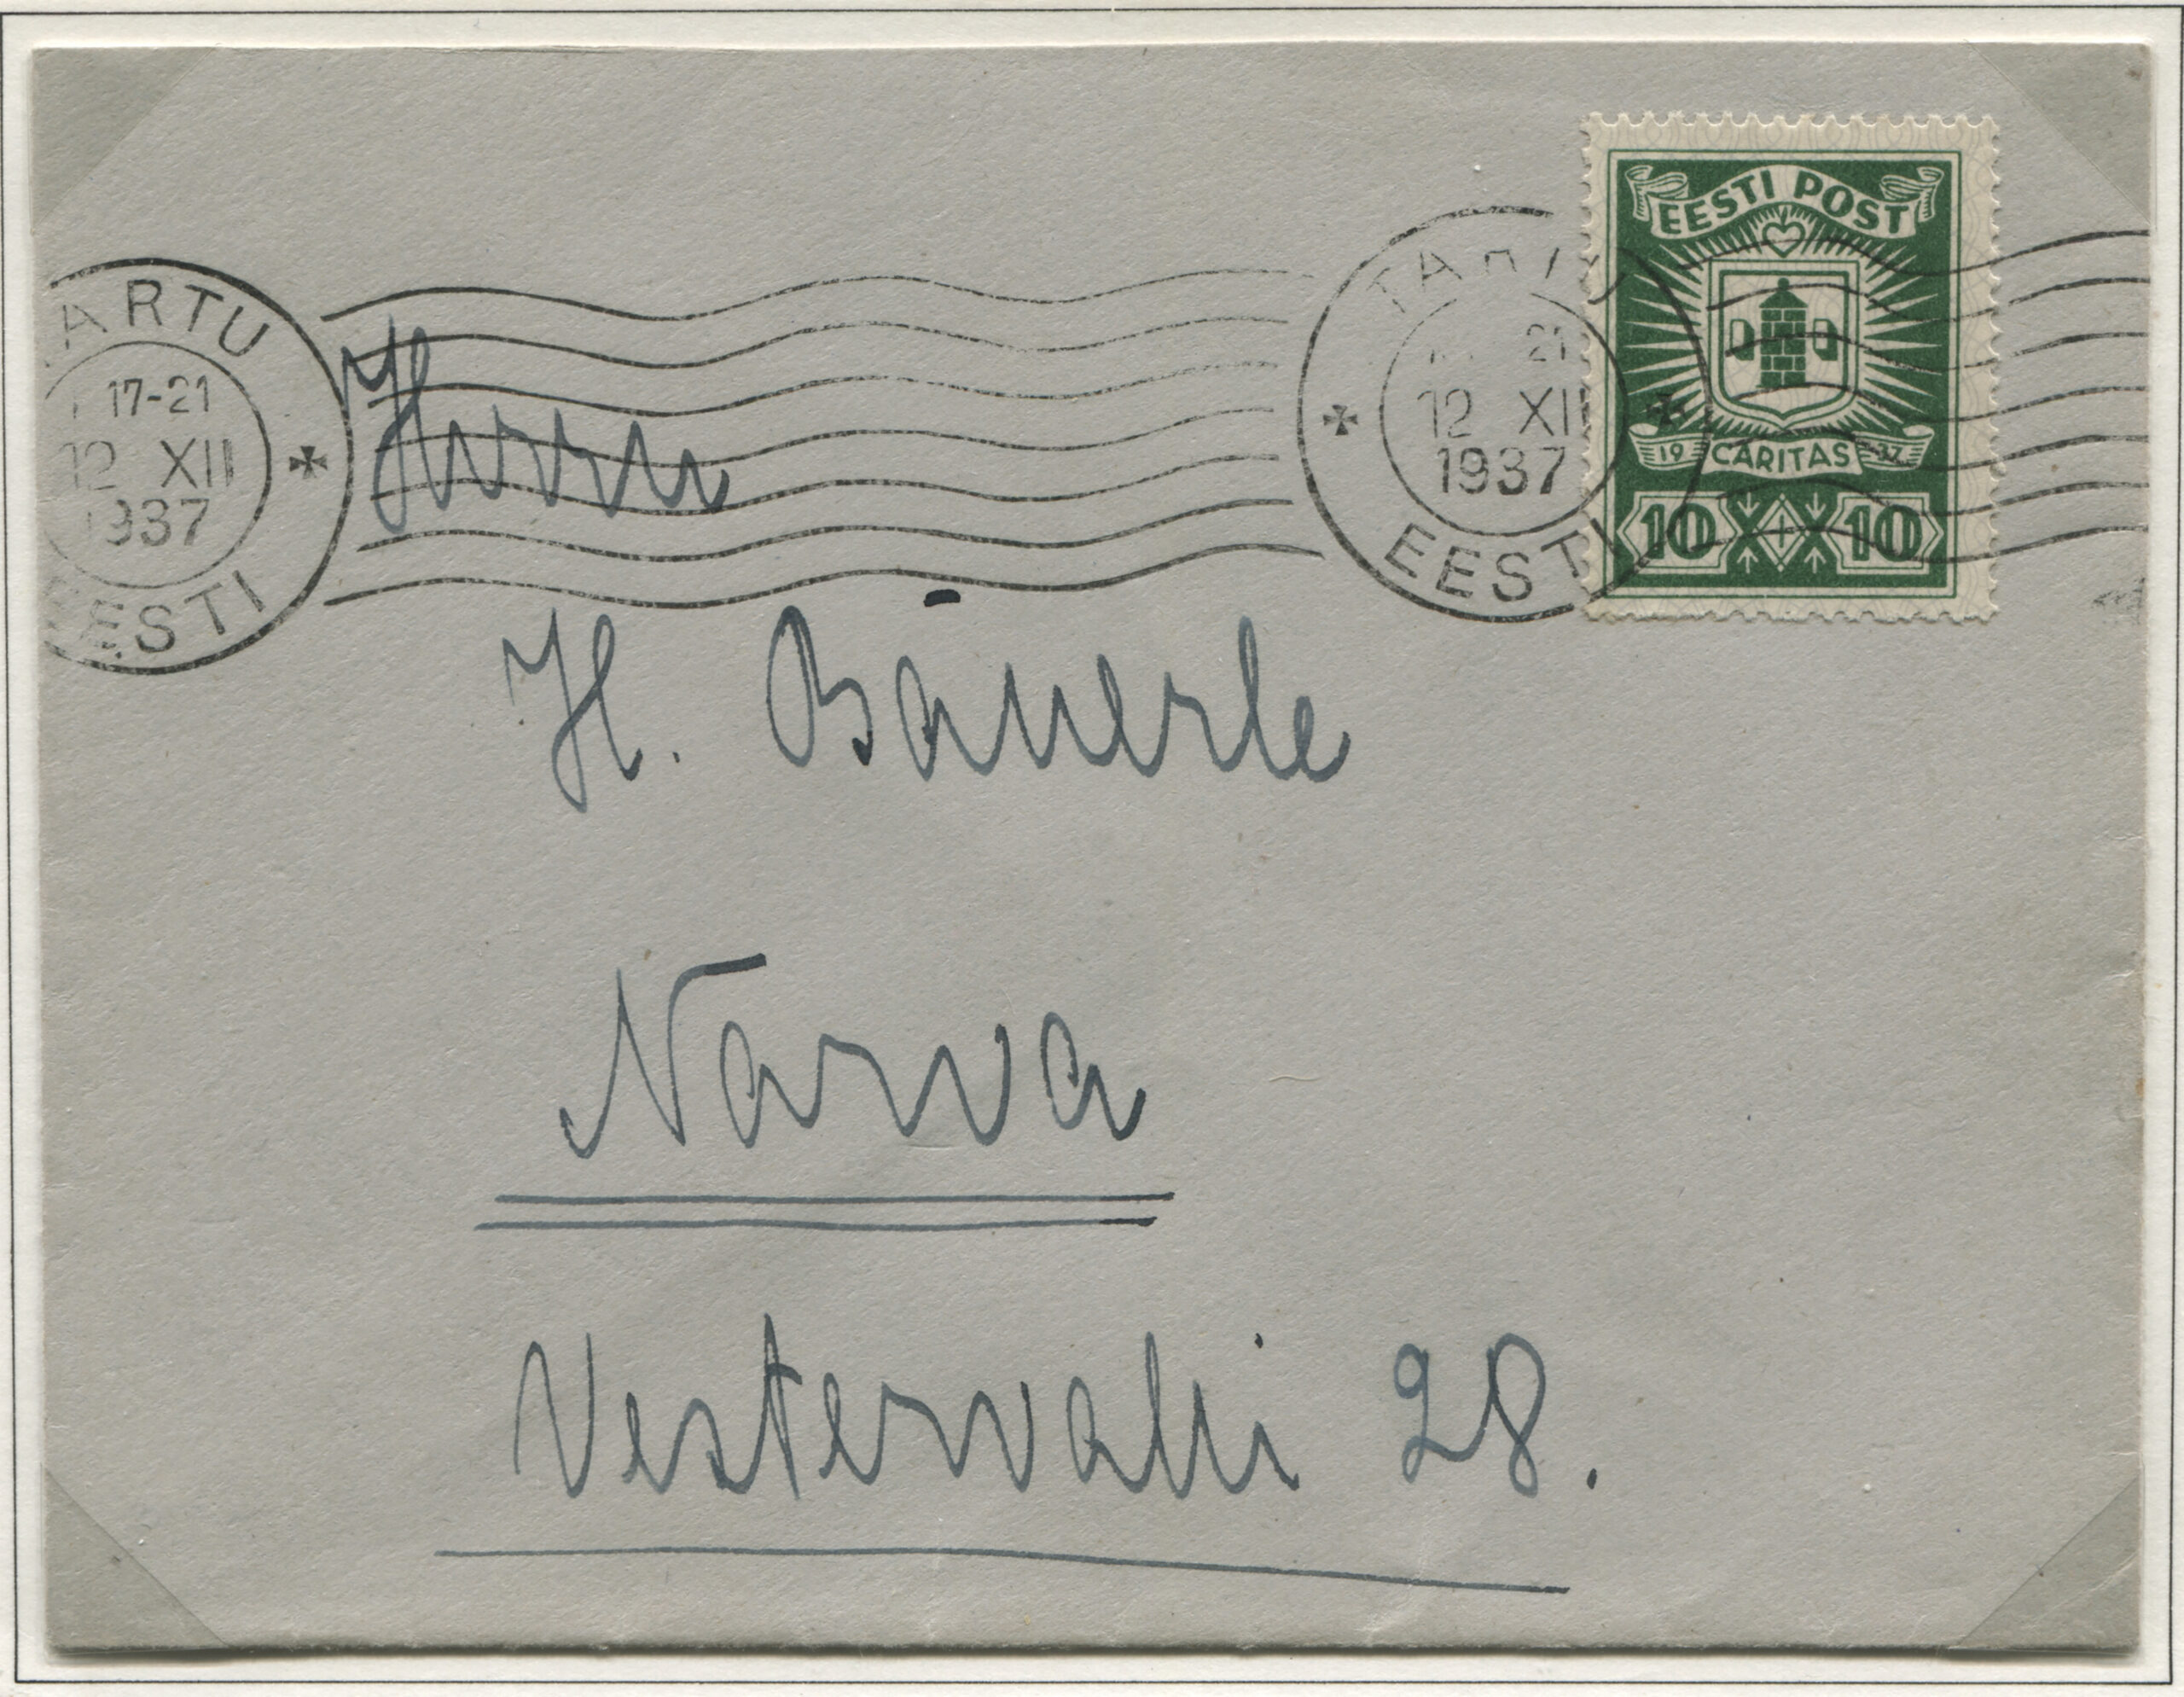 EESTI POST
19 CARITAS 37
10 + 10
TARTU
21
12 XII
1937
EESTI
ARTU
17-21
12 XII
1937
EESTI
Herrn
H. Bäuerle
Narva
Vestervalli 28.